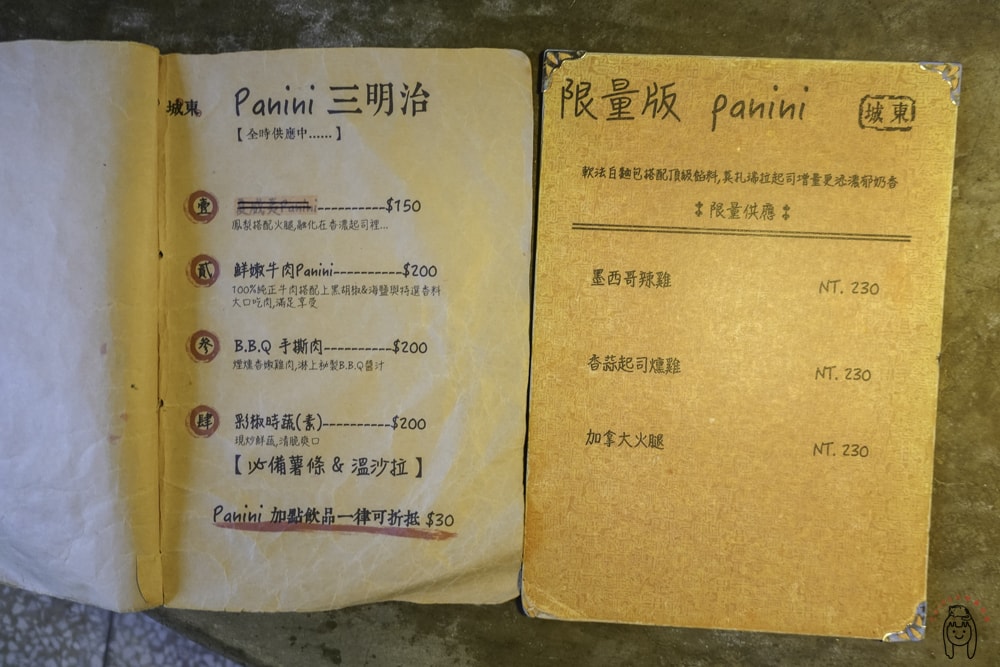 城東
Panini 三明治
【 全時供應中...... 】
壹 夏威夷Panini----------$150
鳳梨搭配火腿,融化在香濃起司裡...
貳 鮮嫩牛肉Panini----------$200
100%純正牛肉搭配上黑胡椒&海鹽與特選香料
大口吃肉,滿足享受
參 B.B.Q 手撕肉----------$200
煙燻香嫩雞肉,淋上秘製B.B.Q醬汁
肆 彩椒時蔬(素)----------$200
現炒鮮蔬,清脆爽口
【 必備薯條 & 溫沙拉 】
Panini 加點飲品一律可折抵 $30
限量版 panini
城東
軟法白麵包搭配頂級餡料,莫札瑞拉起司增量更添濃郁奶香
限量供應
墨西哥辣雞 NT. 230
香蒜起司燻雞 NT. 230
加拿大火腿 NT. 230